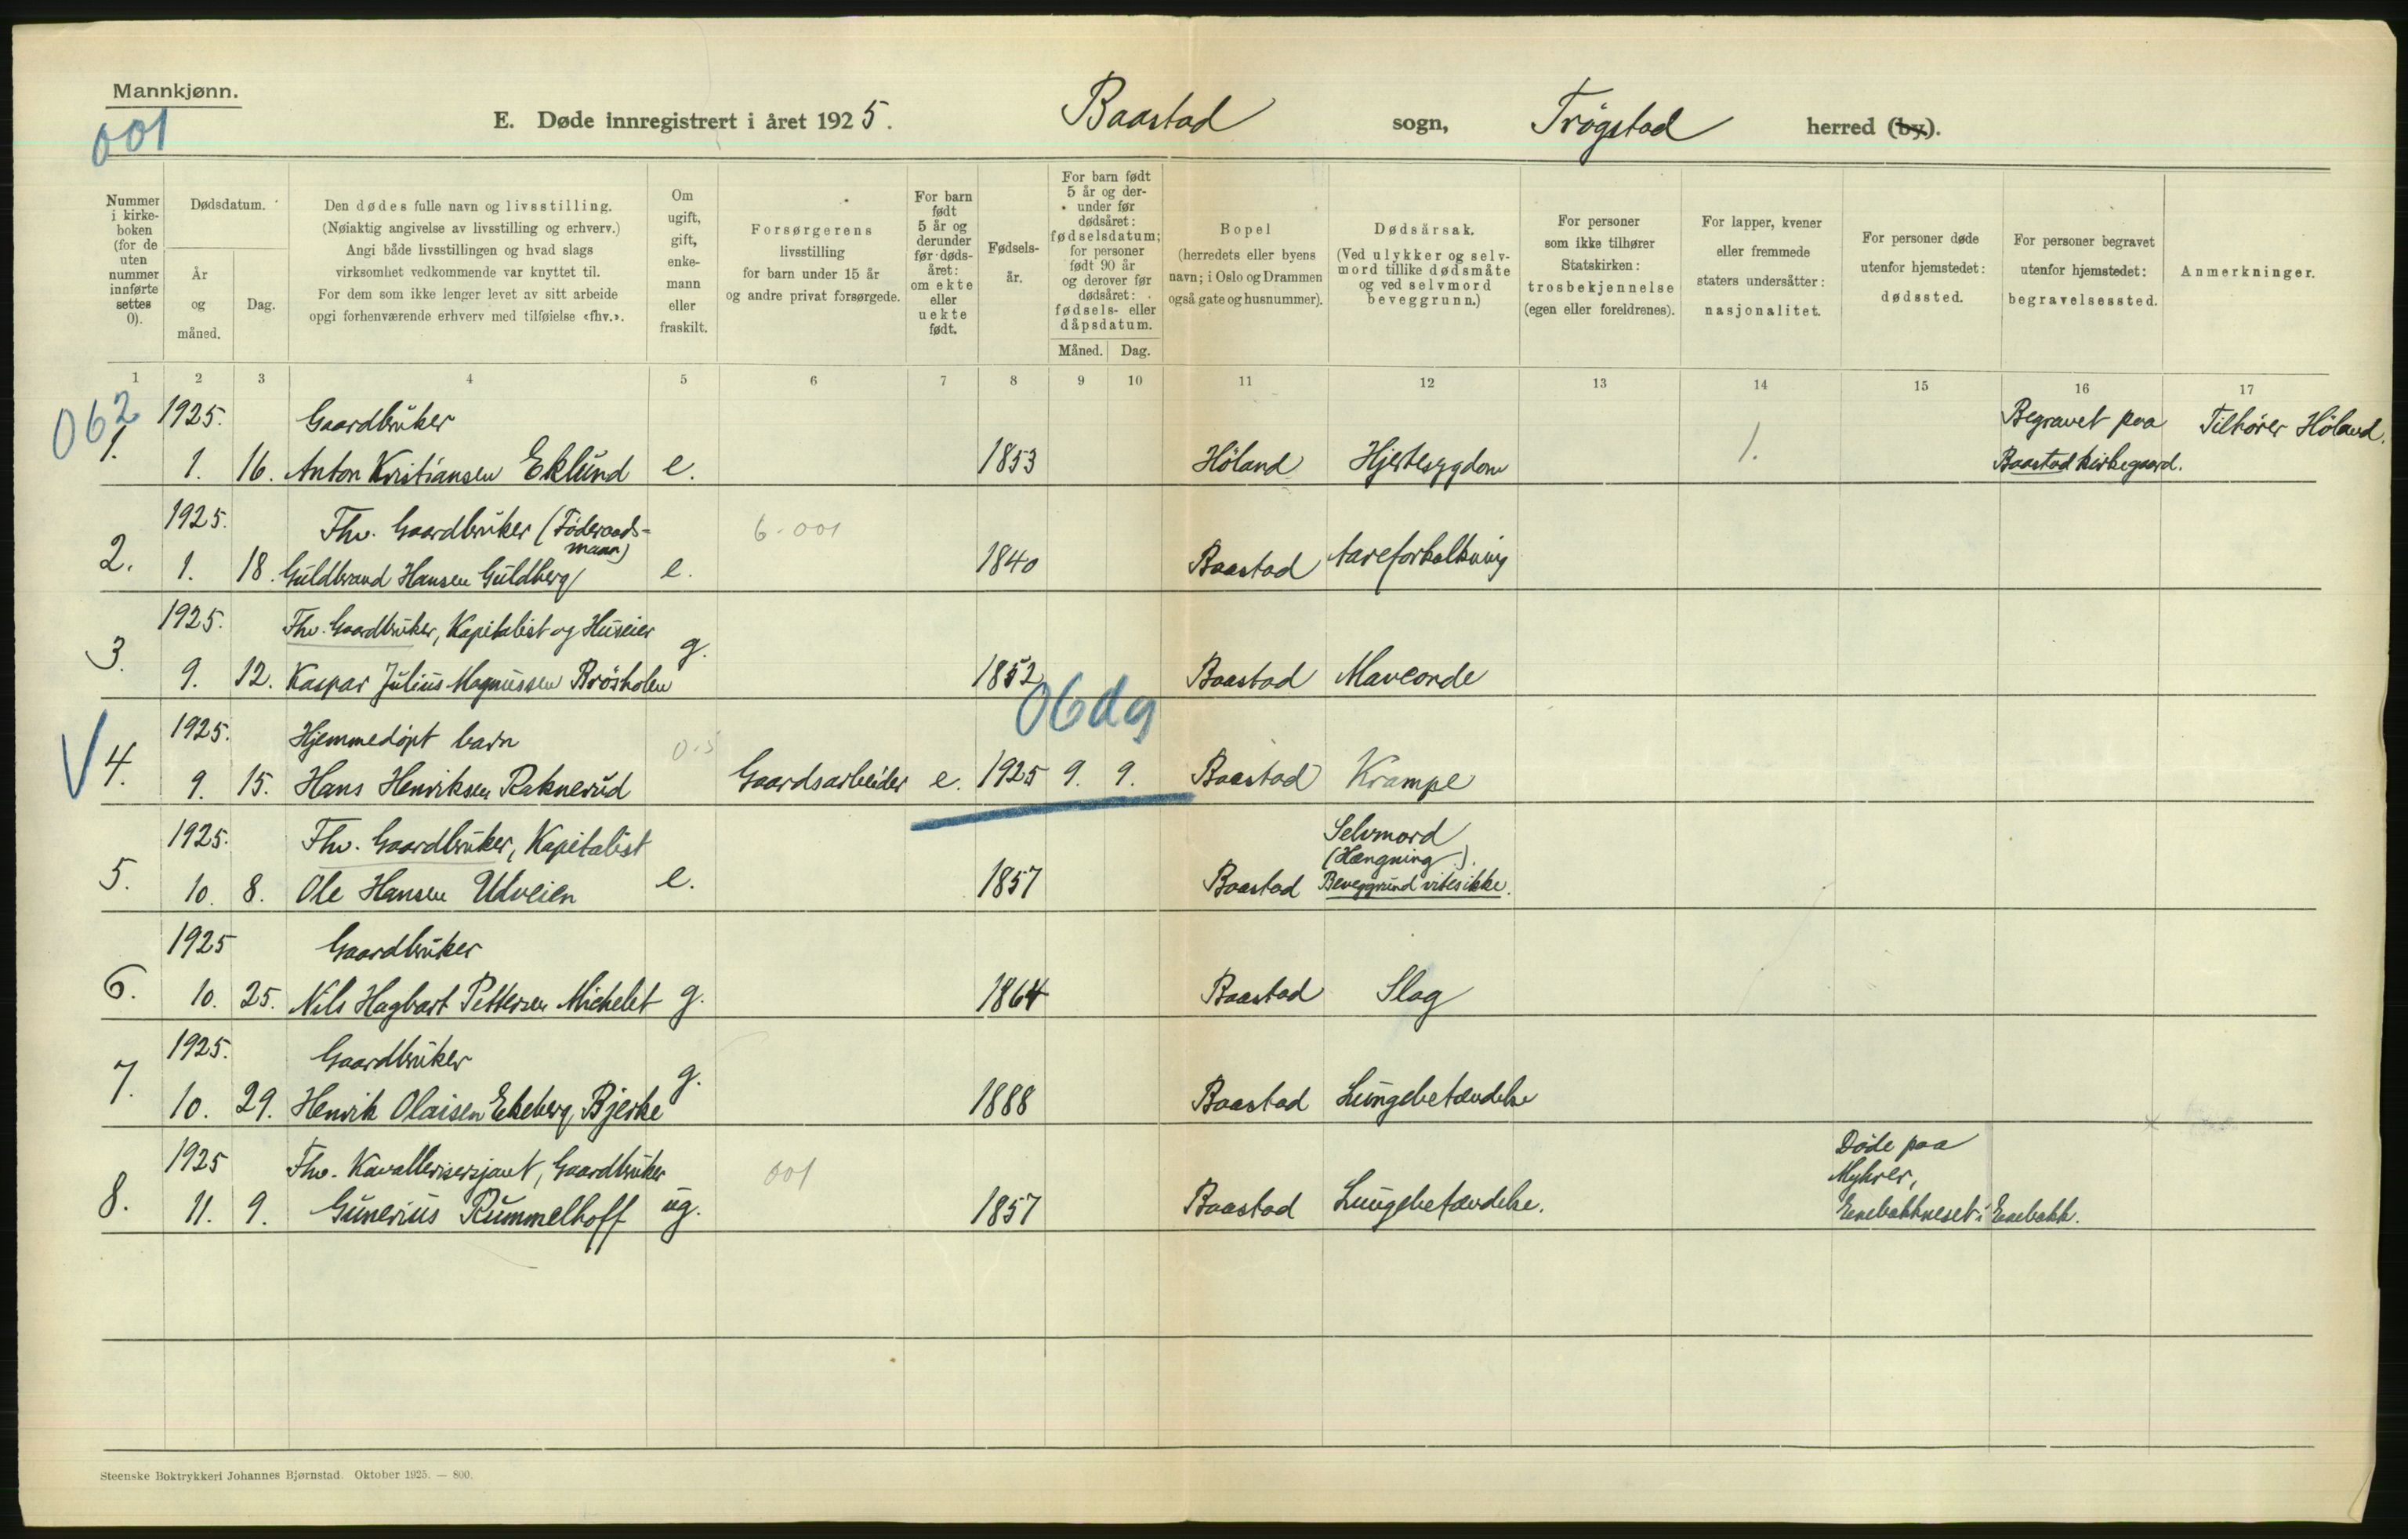 Mannkjønn.
001
E. Døde innregistrert i året 1925. Baastad sogn, Trøgstad herred (by).
Nummer i kirkeboken (for de uten nummer innførte settes 0).
Dødsdatum.
År og måned.
Dag.
Den dødes fulle navn og livsstilling.
(Nøiaktig angivelse av livsstilling og erhverv.)
Angi både livsstillingen og hvad slags
virksomhet vedkommende var knyttet til.
For dem som ikke lenger levet av sitt arbeide
opgi forhenværende erhverv med tilføielse «fhv.».
Om ugift, gift, enkemann eller fraskilt.
Forsørgerens
livsstilling
for barn under 15 år
og andre privat forsørgede.
For barn født 5 år og derunder før dødsåret: om ekte eller uekte født.
Fødselsår.
For barn født 5 år og derunder før dødsåret: fødselsdatum; for personer født 90 år og derover før dødsåret: fødsels- eller dåpsdatum.
Måned. Dag.
Bopel
(herredets eller byens
navn; i Oslo og Drammen
også gate og husnummer).
Dødsårsak.
(Ved ulykker og selvmord tillike dødsmåte
og ved selvmord
beveggrunn.)
For personer
som ikke tilhører
Statskirken:
trosbekjennelse
(egen eller foreldrenes).
For lapper, kvener
eller fremmede
staters undersåtter:
nasjonalitet.
For personer døde
utenfor hjemstedet:
dødssted.
For personer begravet
utenfor hjemstedet:
begravelsessted.
Anmerkninger.
1 2 3 4 5 6 7 8 9 10 11 12 13 14 15 16 17
062
1925. Gaardbruker Begravet paa Tilhører Høland.
1. 1. 16. Anton Kristiansen Eklund e. 1853 Høland Hjertesygdom 1. Baastad kirkegaard.
1925. Fhv. Gaardbruker (Føderaads-
mann) 6-001
2. 1. 18. Guldbrand Hansen Guldberg e. 1840 Baastad Aareforkalkning
1925. Fhv. Gaardbruker, Kapitalist og Huseier
3. 9. 12. Kaspar Julius Magnussen Brøsholen g. 1852 Baastad Mavcorde
06dg
1925. Hjemmedøpt barn 0.5
V 4. 9. 15. Hans Henriksen Raknerud Gaardsarbeider e. 1925 9. 9. Baastad Krampe
1925. Fhv. Gaardbruker, Kapitalist Selvmord
(Hængning).
5. 10. 8. Ole Hansen Udveien e. 1857 Baastad Beveggrund vites ikke.
1925 Gaardbruker
6. 10. 25. Nils Hagbart Pettersen Michelet g. 1864 Baastad Slag
1925. Gaardbruker
7. 10. 29. Henrik Olaisen Ekeberg, Bjerke g. 1888 Baastad Lungebetændelse
1925 Fhv. Kavallerisersjant, Gaardbruker 001 Døde paa
Myhrer,
8. 11. 9. Gunerius Rummelhoff ug. 1857 Baastad Lungebetændelse. Enebakkneset i Enebakk.
Steenske Boktrykkeri Johannes Bjørnstad. Oktober 1925. — 800.